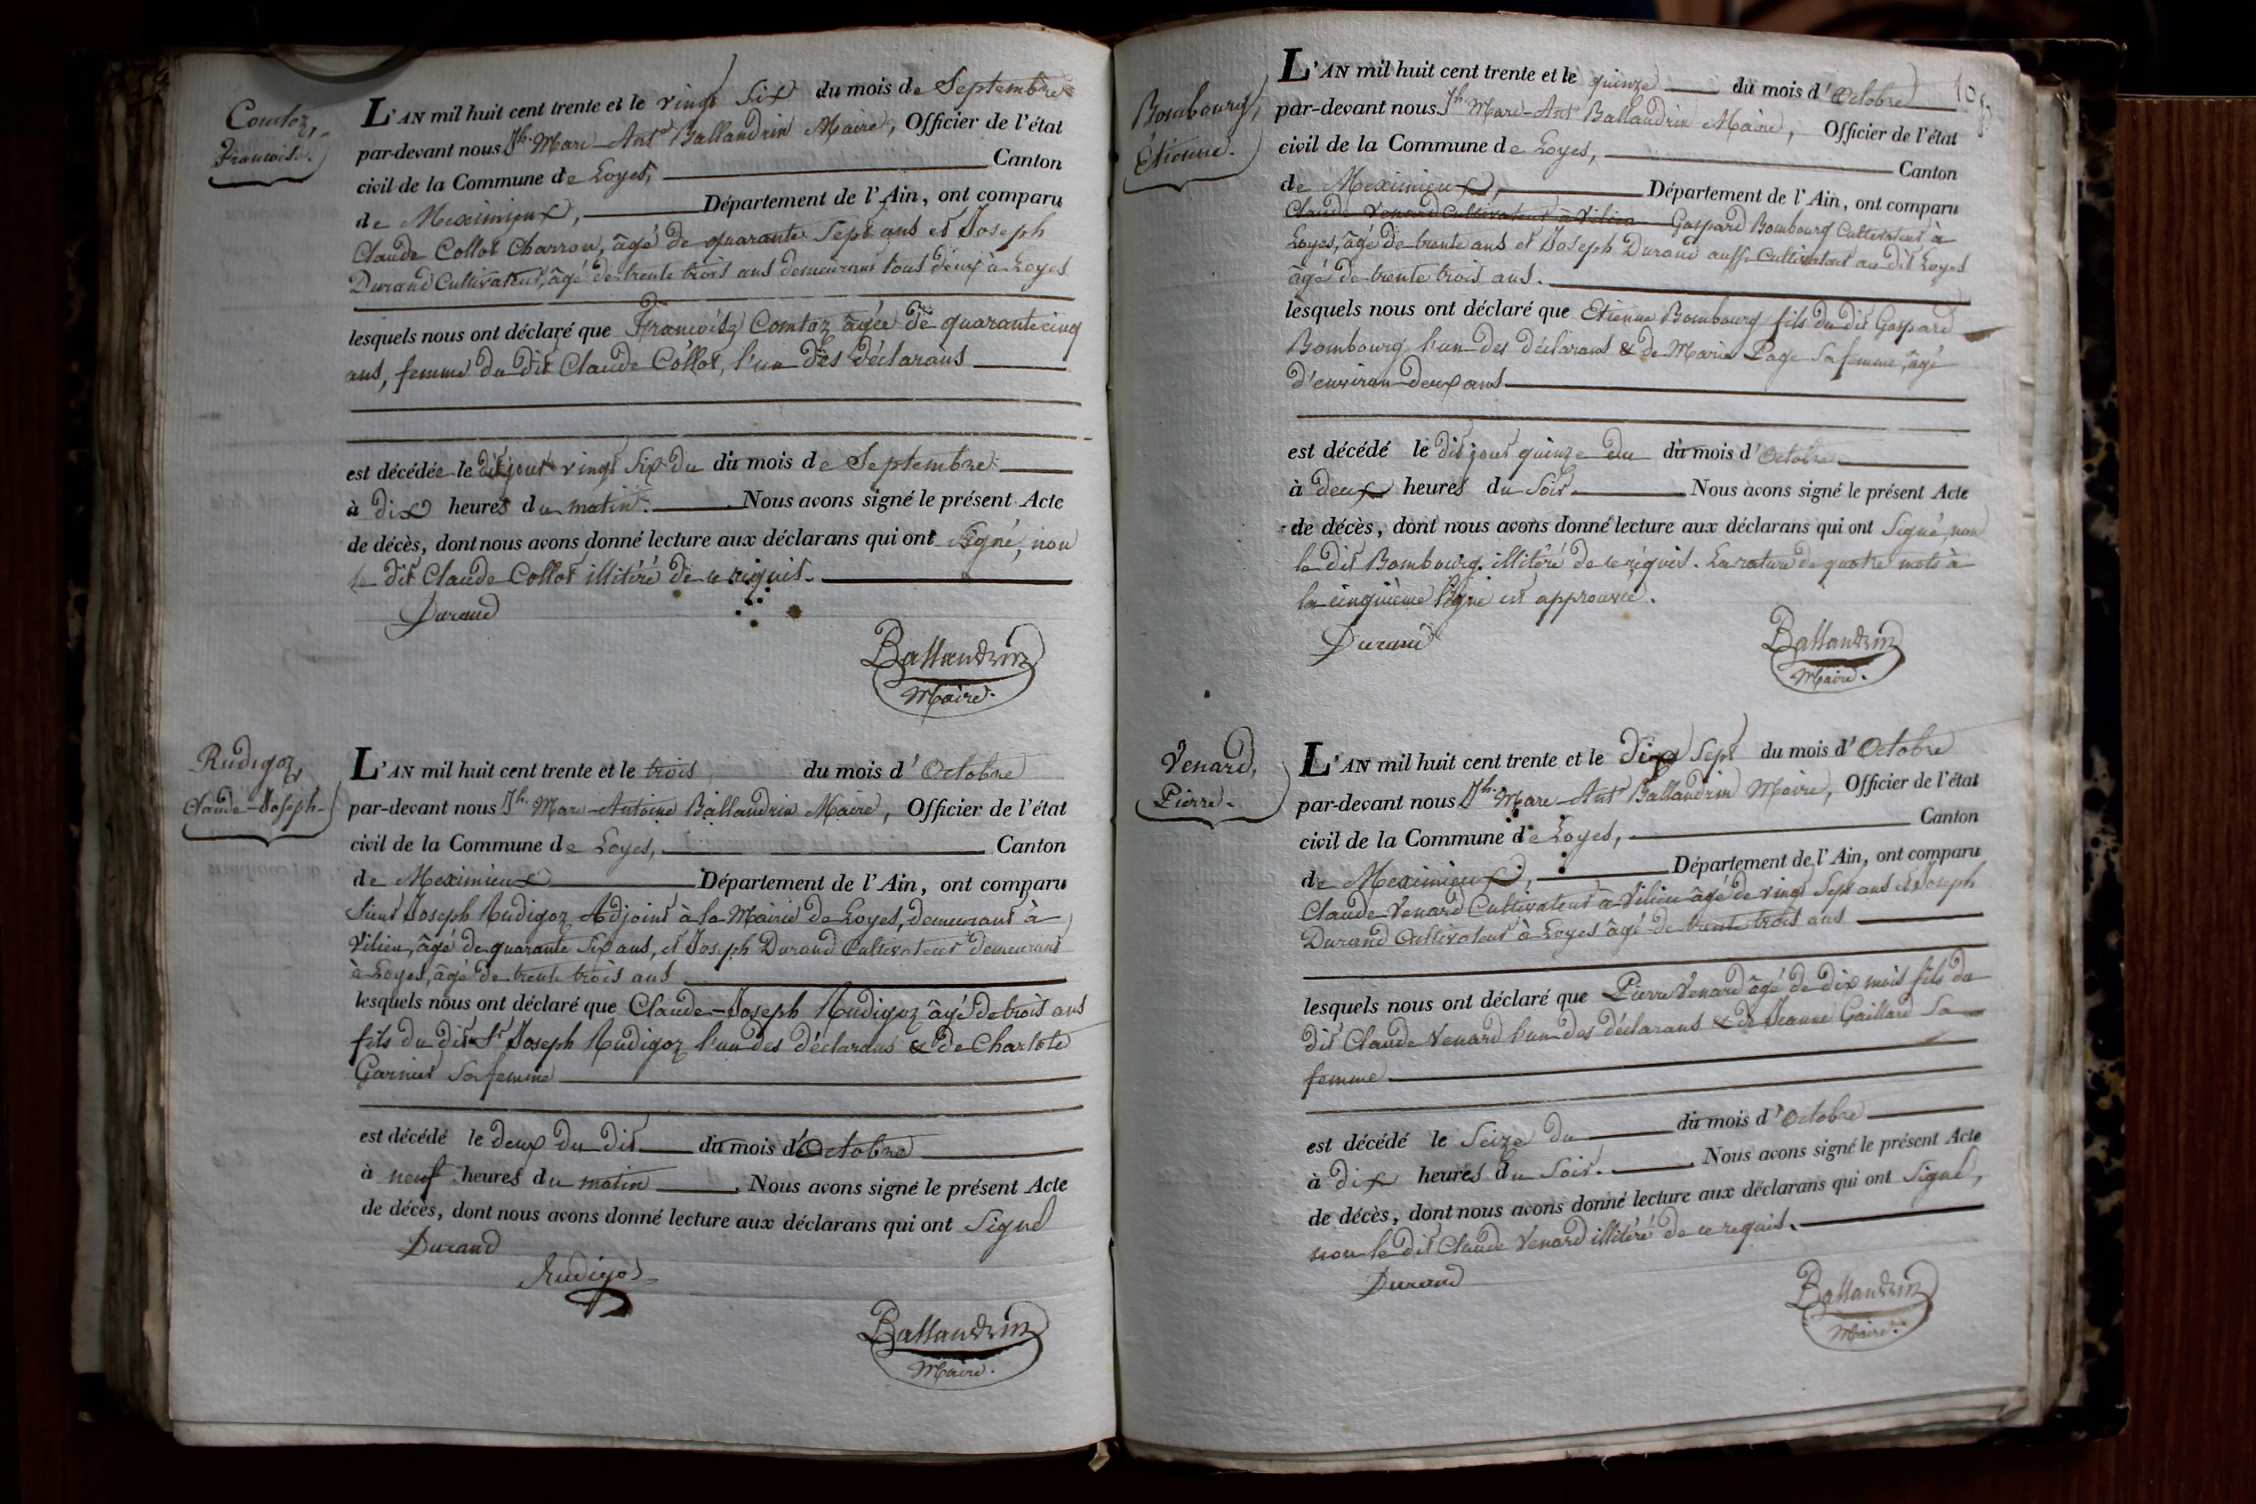 Comtoz,
Françoise.
L'AN mil huit cent trente et le vingt Six du mois de Septembre
par-devant nous Jh. Marc-Ant. Ballandrin Maire, Officier de l'état
civil de la Commune de Loyes, Canton
de Meximieux, Département de l'Ain, ont comparu
Claude Collot Charron, âgé de quarante Sept ans et Joseph
Durand Cultivateur, âgé de trente trois ans demeurant tous deux à Loyes
lesquels nous ont déclaré que Françoise Comtoz âgée de quarante cinq
ans, femme du dit Claude Collot, l'un des déclarans
est décédée le dit jour vingt Six du du mois de Septembre
à dix heures du matin. Nous avons signé le présent Acte
de décès, dont nous avons donné lecture aux déclarans qui ont Signé, non
le dit Claude Collot illitéré de ce requis.
Durand
Ballandrin
Maire.
Rudigoz,
Claude-Joseph-
L'AN mil huit cent trente et le trois du mois d'Octobre
par-devant nous Jh. Marc-Antoine Ballandrin Maire, Officier de l'état
civil de la Commune de Loyes, Canton
de Meximieux Département de l'Ain, ont comparu
Sieur Joseph Rudigoz Adjoint à la Mairie de Loyes, demeurant à
Vilieu, âgé de quarante Six ans, et Joseph Durand Cultivateur demeurant
à Loyes, âgé de trente trois ans
lesquels nous ont déclaré que Claude-Joseph Rudigoz âgé de trois ans
fils du dit Sr Joseph Rudigoz l'un des déclarans & de Charlote
Garnier Sa femme
est décédé le deux du dit du mois d'Octobre
à neuf heures du matin. Nous avons signé le présent Acte
de décès, dont nous avons donné lecture aux déclarans qui ont Signé
Durand
Rudigoz
Ballandrin
Maire.
Bombourg,
Etienne.
L'AN mil huit cent trente et le quinze du mois d'Octobre
par-devant nous Jh. Marc-Ant. Ballandrin Maire, Officier de l'état
civil de la Commune de Loyes, Canton
de Meximieux, Département de l'Ain, ont comparu
Claude Venard Cultivateur à Vilieu Gaspard Bombourg Cultivateur à
Loyes, âgé de trente ans et Joseph Durand aussi Cultivateur au dit Loyes
âgé de trente trois ans.
lesquels nous ont déclaré que Etienne Bombourg fils du dit Gaspard
Bombourg l'un des déclarans & de Marie Page Sa femme, âgé
d'environ deux ans
est décédé le dit jour quinze du du mois d'Octobre
à deux heures du Soir. Nous avons signé le présent Acte
de décès, dont nous avons donné lecture aux déclarans qui ont Signé, non
le dit Bombourg illitéré de ce requis. La rature de quatre mots à
la cinquième ligne est approuvée.
Durand
Ballandrin
Maire.
Venard,
Pierre.
L'AN mil huit cent trente et le dix Sept du mois d'Octobre
par-devant nous Jh. Marc-Ant. Ballandrin Maire, Officier de l'état
civil de la Commune de Loyes, Canton
de Meximieux, Département de l'Ain, ont comparu
Claude Venard Cultivateur à Vilieu âgé de vingt Sept ans et Joseph
Durand Cultivateur à Loyes âgé de trente trois ans
lesquels nous ont déclaré que Pierre Venard âgé de dix mois fils du
dit Claude Venard l'un des déclarans & de Jeanne Gaillard Sa
femme
est décédé le Seize du du mois d'Octobre
à dix heures du Soir. Nous avons signé le présent Acte
de décès, dont nous avons donné lecture aux déclarans qui ont Signé,
non le dit Claude Venard illitéré de ce requis.
Durand
Ballandrin
Maire.